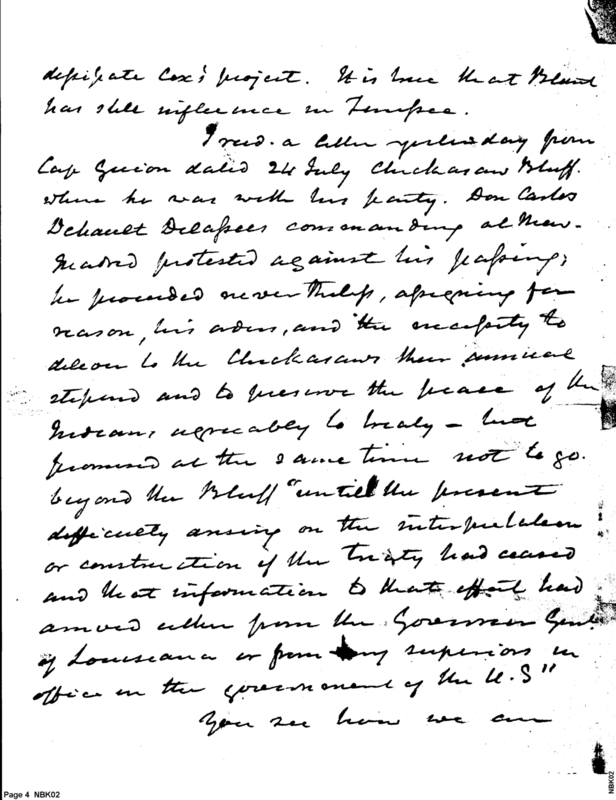 dissipate Cox's project. It is true that Blount
has still influence in Tennessee.
I recd. a letter yesterday from
Cap Guion dated 24 July Chickasaw Bluff.
where he was with his party. Don Carlos
Dehault Delassees commanding at New-
Madrid protested against his passing;
he proceeded nevertheless, assigning for
reason, his orders, and the necessity to
deliver to the Chickasaws their annual
stipend and to preserve the peace of the
Indians, agreeably to treaty – but
promised at the same time not to go.
beyond the Bluff "until the present
difficulty arising on the interpretation
or construction of the treaty had ceased
and that information to that effect had
arrived either from the Governor Genl.
of Louisiana or from my superiors in
office in the government of the U.S"
You see how we are
Page 4 NBK02
NBK02